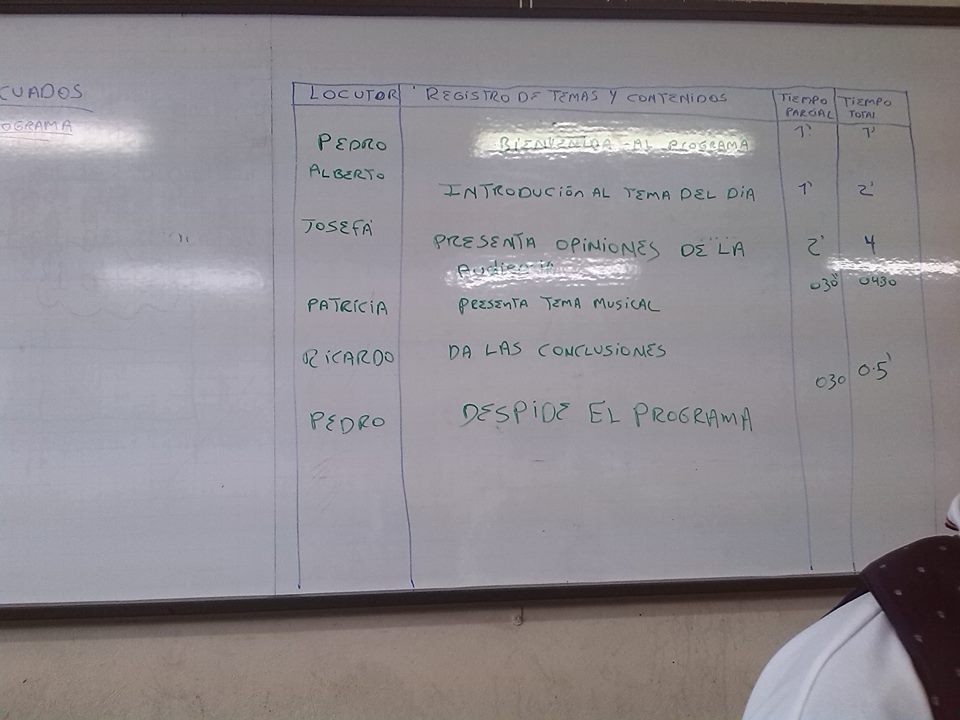 CUADOS
OGRAMA
LOCUTOR REGISTRO DE TEMAS Y CONTENIDOS TIEMPO PARCIAL TIEMPO TOTAL
PEDRO BIENVENIDA AL PROGRAMA 1' 1'
ALBERTO
INTRODUCIÓN AL TEMA DEL DIA 1' 2'
JOSEFA
PRESENTA OPINIONES DE LA 2' 4
Audiencia
030 0430
PATRICIA PRESENTA TEMA MUSICAL
RICARDO DA LAS CONCLUSIONES
030 0.5'
PEDRO DESPIDE EL PROGRAMA